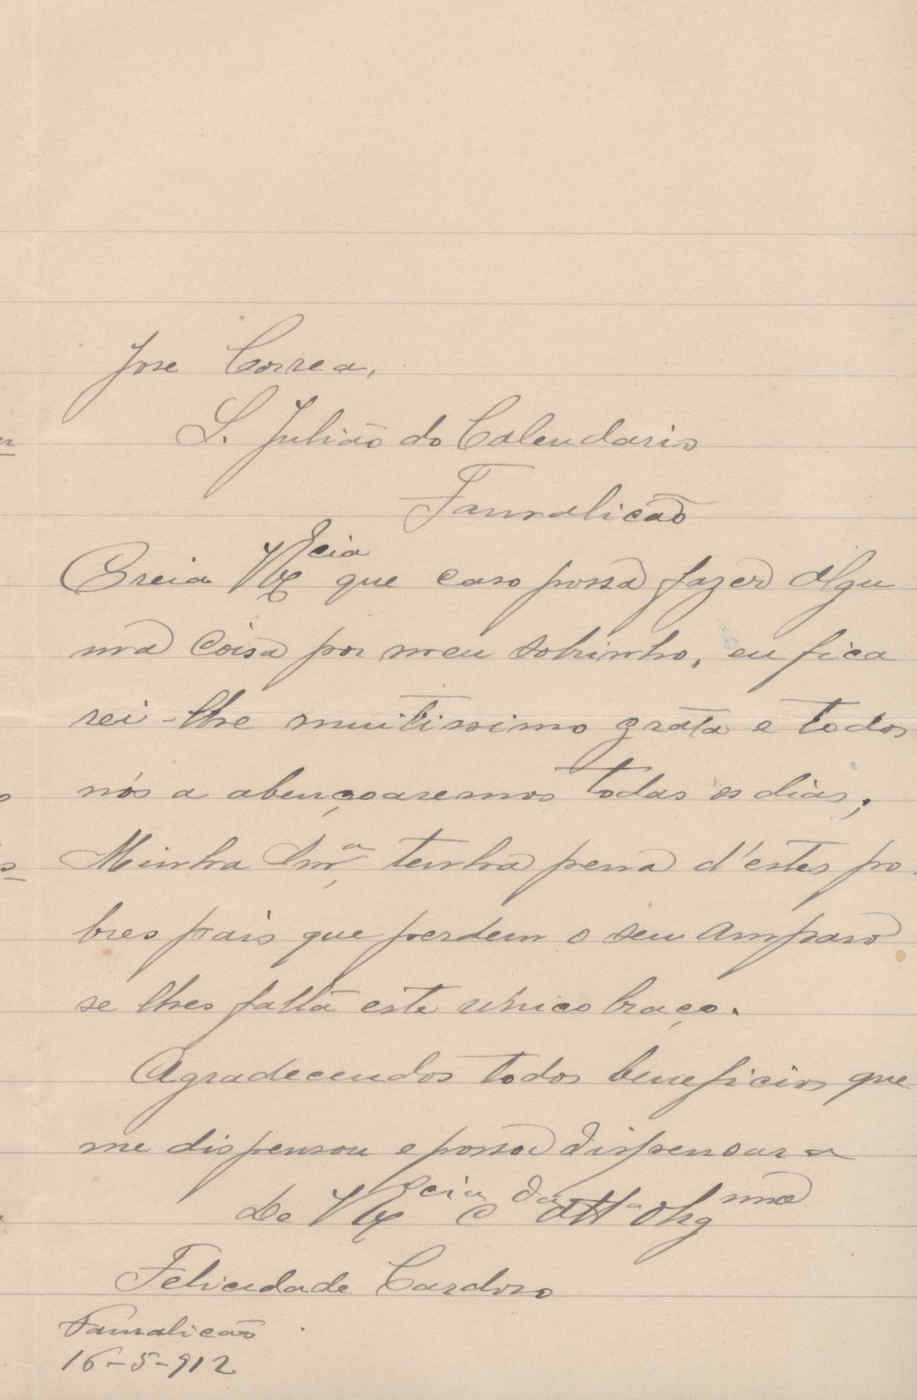 Jose Correa,
S. Julião do Calendario
Famalicão
Creia V Ex.cia que caso possa fazer algu
ma coisa por meu sobrinho, eu fica
rei-lhe muitissimo grata e todos
nós a abençoaremos todos os dias;
Minha Snr.ª, tenha pena d'estes po
bres pais que perdem o seu amparo
se lhes falta este unico braço.
Agradecendo todos beneficios que
me dispensou e possa dispensar a
De V Ex.cia C.da Att.ª Obg.ma
Felicidade Cardoso
Famalicão
16-5-912